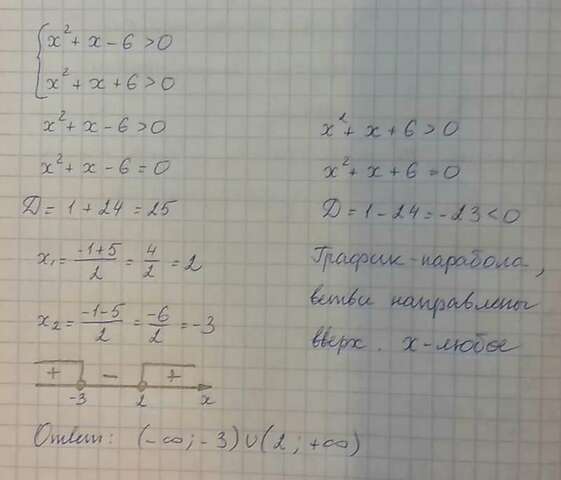 {x² + x - 6 > 0
x² + x + 6 > 0
x² + x - 6 > 0
x² + x - 6 = 0
D = 1 + 24 = 25
x₁ = (-1+5)/2 = 4/2 = 2
x₂ = (-1-5)/2 = -6/2 = -3
+ - +
-3 2 x
x² + x + 6 > 0
x² + x + 6 = 0
D = 1 - 24 = -23 < 0
График - парабола,
ветви направлены
вверх. x - любое
Ответ: (-∞; -3) ∪ (2; +∞)